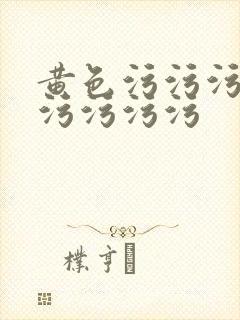 黄色污污污
污污污污
樸亨